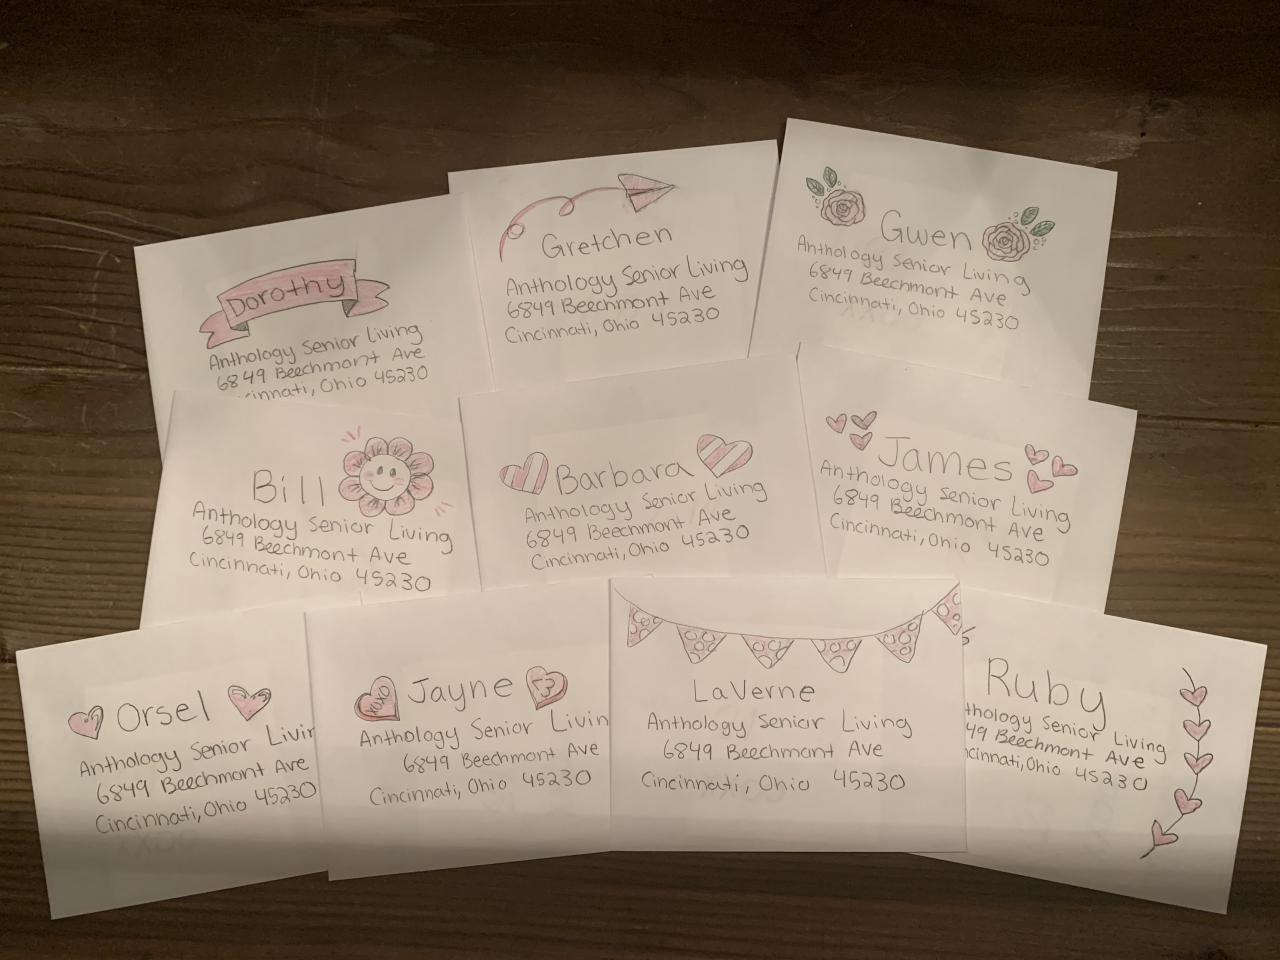 Dorothy
Anthology Senior Living
6849 Beechmont Ave
Cincinnati, Ohio 45230
Gretchen
Anthology Senior Living
6849 Beechmont Ave
Cincinnati, Ohio 45230
Gwen
Anthology Senior Living
6849 Beechmont Ave
Cincinnati, Ohio 45230
Bill
Anthology Senior Living
6849 Beechmont Ave
Cincinnati, Ohio 45230
Barbara
Anthology Senior Living
6849 Beechmont Ave
Cincinnati, Ohio 45230
James
Anthology Senior Living
6849 Beechmont Ave
Cincinnati, Ohio 45230
Orsel
Anthology Senior Livin
6849 Beechmont Ave
Cincinnati, Ohio 45230
XOXO
Jayne
<3
Anthology Senior Livin
6849 Beechmont Ave
Cincinnati, Ohio 45230
LaVerne
Anthology Senior Living
6849 Beechmont Ave
Cincinnati, Ohio 45230
Ruby
thology Senior Living
49 Beechmont Ave
cinnati, Ohio 45230